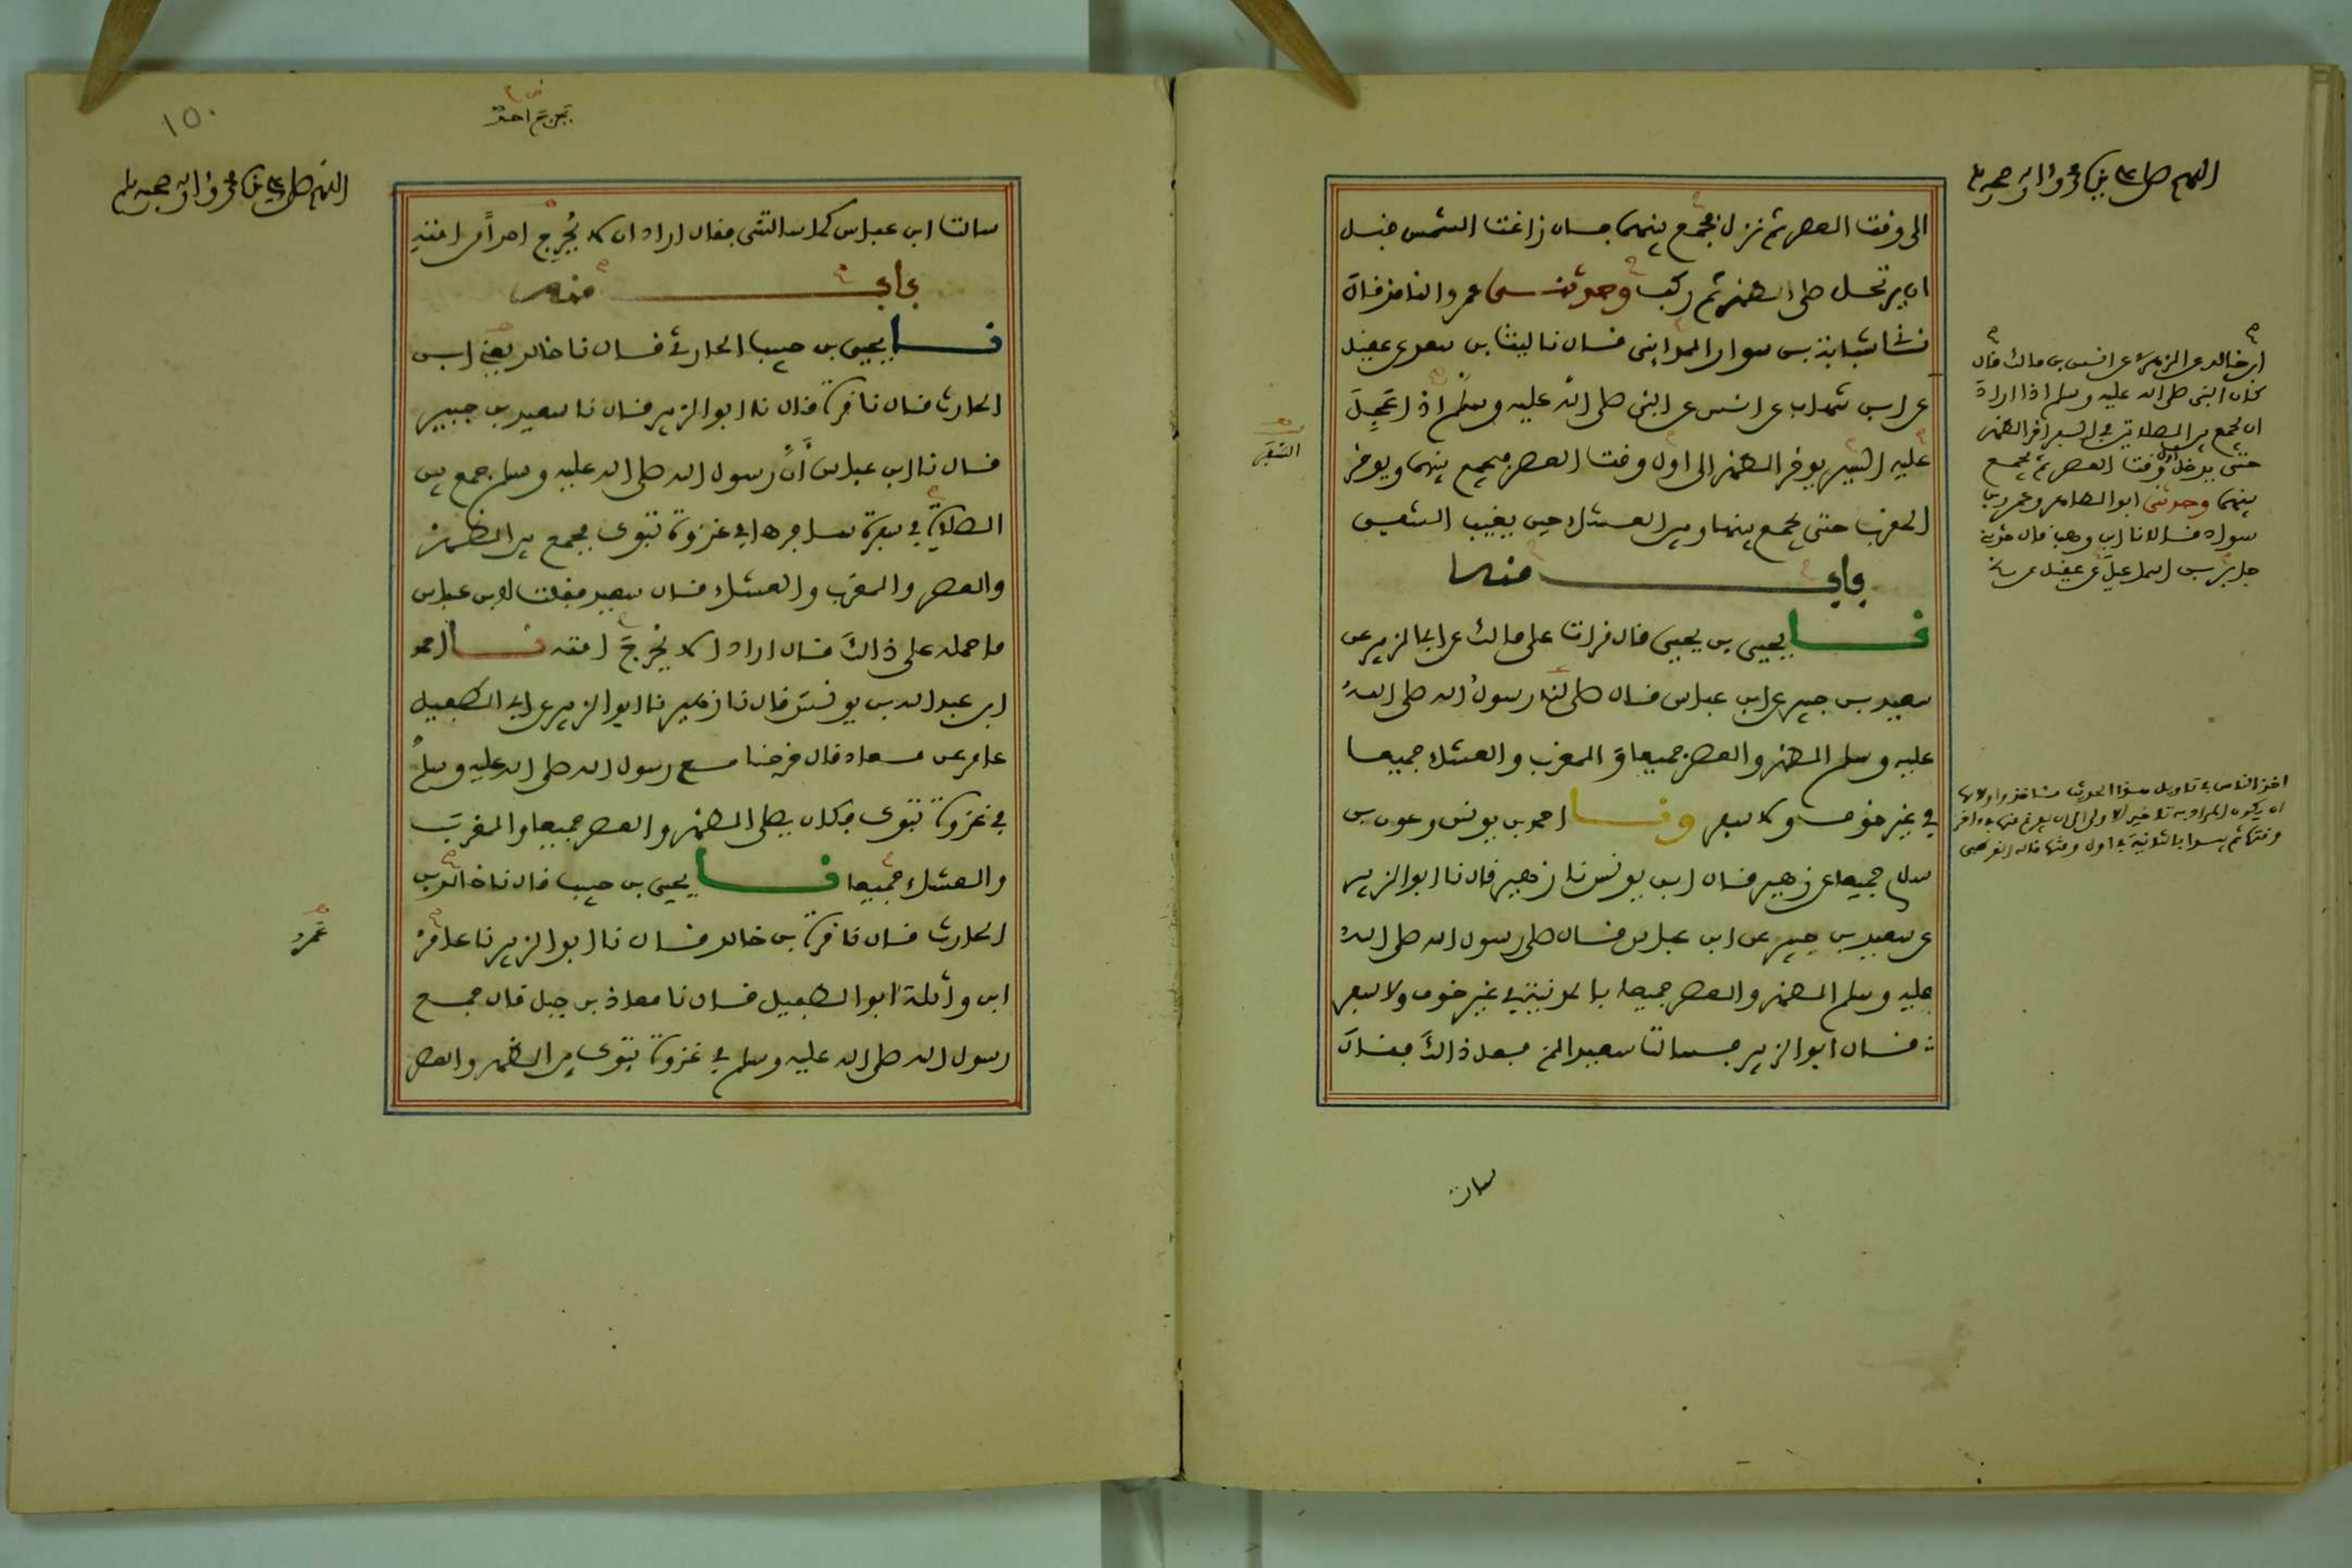 اللهم صل على نبيك محمد واله وصحبه وسلم
الى وقت العصر ثم نزل فجمع بينهما فان زاغت الشمس قبل
ان يرتحل صلى الظهر ثم ركب وحدثنى عمرو الناقد قال
نا شبابة بن سوار المداينى قال نا ليث بن سعد عن عقيل
عن ابن شهاب عن انس عن النبى صلى الله عليه وسلم اذا عجل
عليه السير يوخر الظهر الى اول وقت العصر فيجمع بينهما ويوخر
المغرب حتى يجمع بينها وبين العشاء حين يغيب الشفق
باب منه
نا يحيى بن يحيى قال قرات على مالك عن ابى الزبير عن
سعيد بن جبير عن ابن عباس قال صلى لنا رسول الله صلى الله
عليه وسلم الظهر والعصر جميعا والمغرب والعشاء جميعا
فى غير خوف ولا سفر ونا احمد بن يونس وعون بن
سلام جميعا عن زهير قال ابن يونس نا زهير قال نا ابو الزبير
عن سعيد بن جبير عن ابن عباس قال صلى رسول الله صلى الله
عليه وسلم الظهر والعصر جميعا بالمدينة فى غير خوف ولا سفر
قال ابو الزبير فسالت سعيدا لم فعل ذلك فقال
سالت
السفر
ابن خالد عن الزهرى عن انس بن مالك قال
كان النبى صلى الله عليه وسلم اذا اراد
ان يجمع بين الصلاتين فى السفر اخر الظهر
حتى يدخل اول وقت العصر ثم يجمع
بينهما وحدثنى ابو الطاهر وعمرو بن
سواد قالا نا ابن وهب قال حدثنى
جابر بن اسماعيل عن عقيل عن ابن
اللهم صل على نبيك محمد واله وصحبه وسلم
١٥٠
تحرج امته
سالت ابن عباس كما سالتنى فقال اراد ان لا يحرج احدا من امته
باب منه
نا يحيى بن حبيب الحارثى قال نا خالد يعنى ابن
الحارث قال نا قرة قال نا ابو الزبير قال نا سعيد بن جبير
قال نا ابن عباس أن رسول الله صلى الله عليه وسلم جمع بين
الصلاة فى سفرة سافرها فى غزوة تبوك فجمع بين الظهر
والعصر والمغرب والعشاء قال سعيد فقلت لابن عباس
ما حمله على ذلك قال اراد الا يحرج امته نا احمد
ابن عبد الله بن يونس قال نا زهير نا ابو الزبير عن ابى الطفيل
عامر عن معاذ قال خرجنا مع رسول الله صلى الله عليه وسلم
فى غزوة تبوك فكان يصلى الظهر والعصر جميعا والمغرب
والعشاء جميعا نا يحيى بن حبيب قال نا خالد بن
الحارث قال نا قرة بن خالد قال نا ابو الزبير نا عامر
ابن واثلة ابو الطفيل قال نا معاذ بن جبل قال جمع
رسول الله صلى الله عليه وسلم فى غزوة تبوك بين الظهر والعصر
عمرو